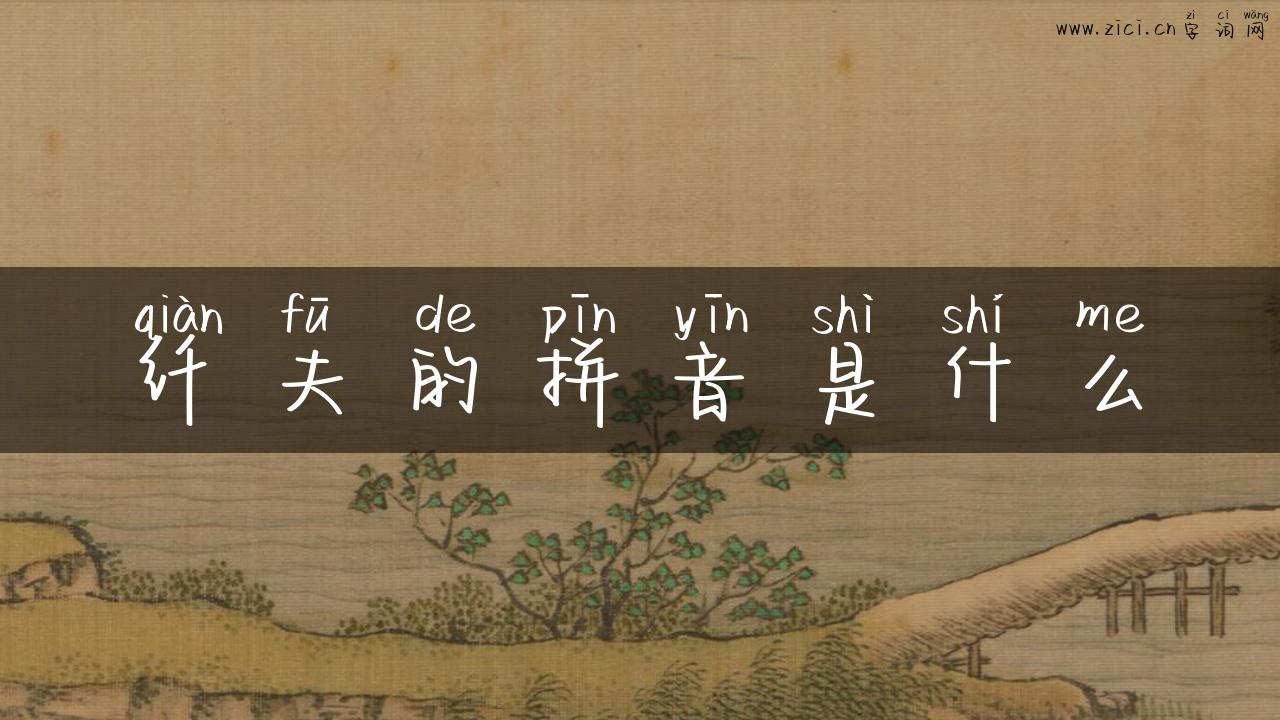 zì cí wǎng
www.zici.cn 字 词 网
qiàn fū de pīn yīn shì shí me
纤 夫 的 拼 音 是 什 么